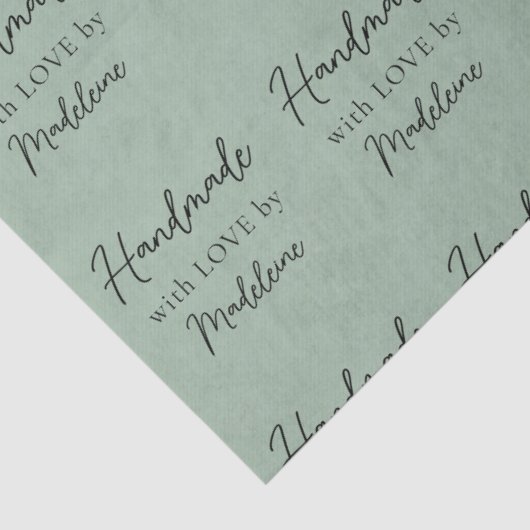 Handmade
with LOVE by
Madeleine
Handmade
with LOVE by
Madeleine
Handmade
with LOVE by
Madeleine